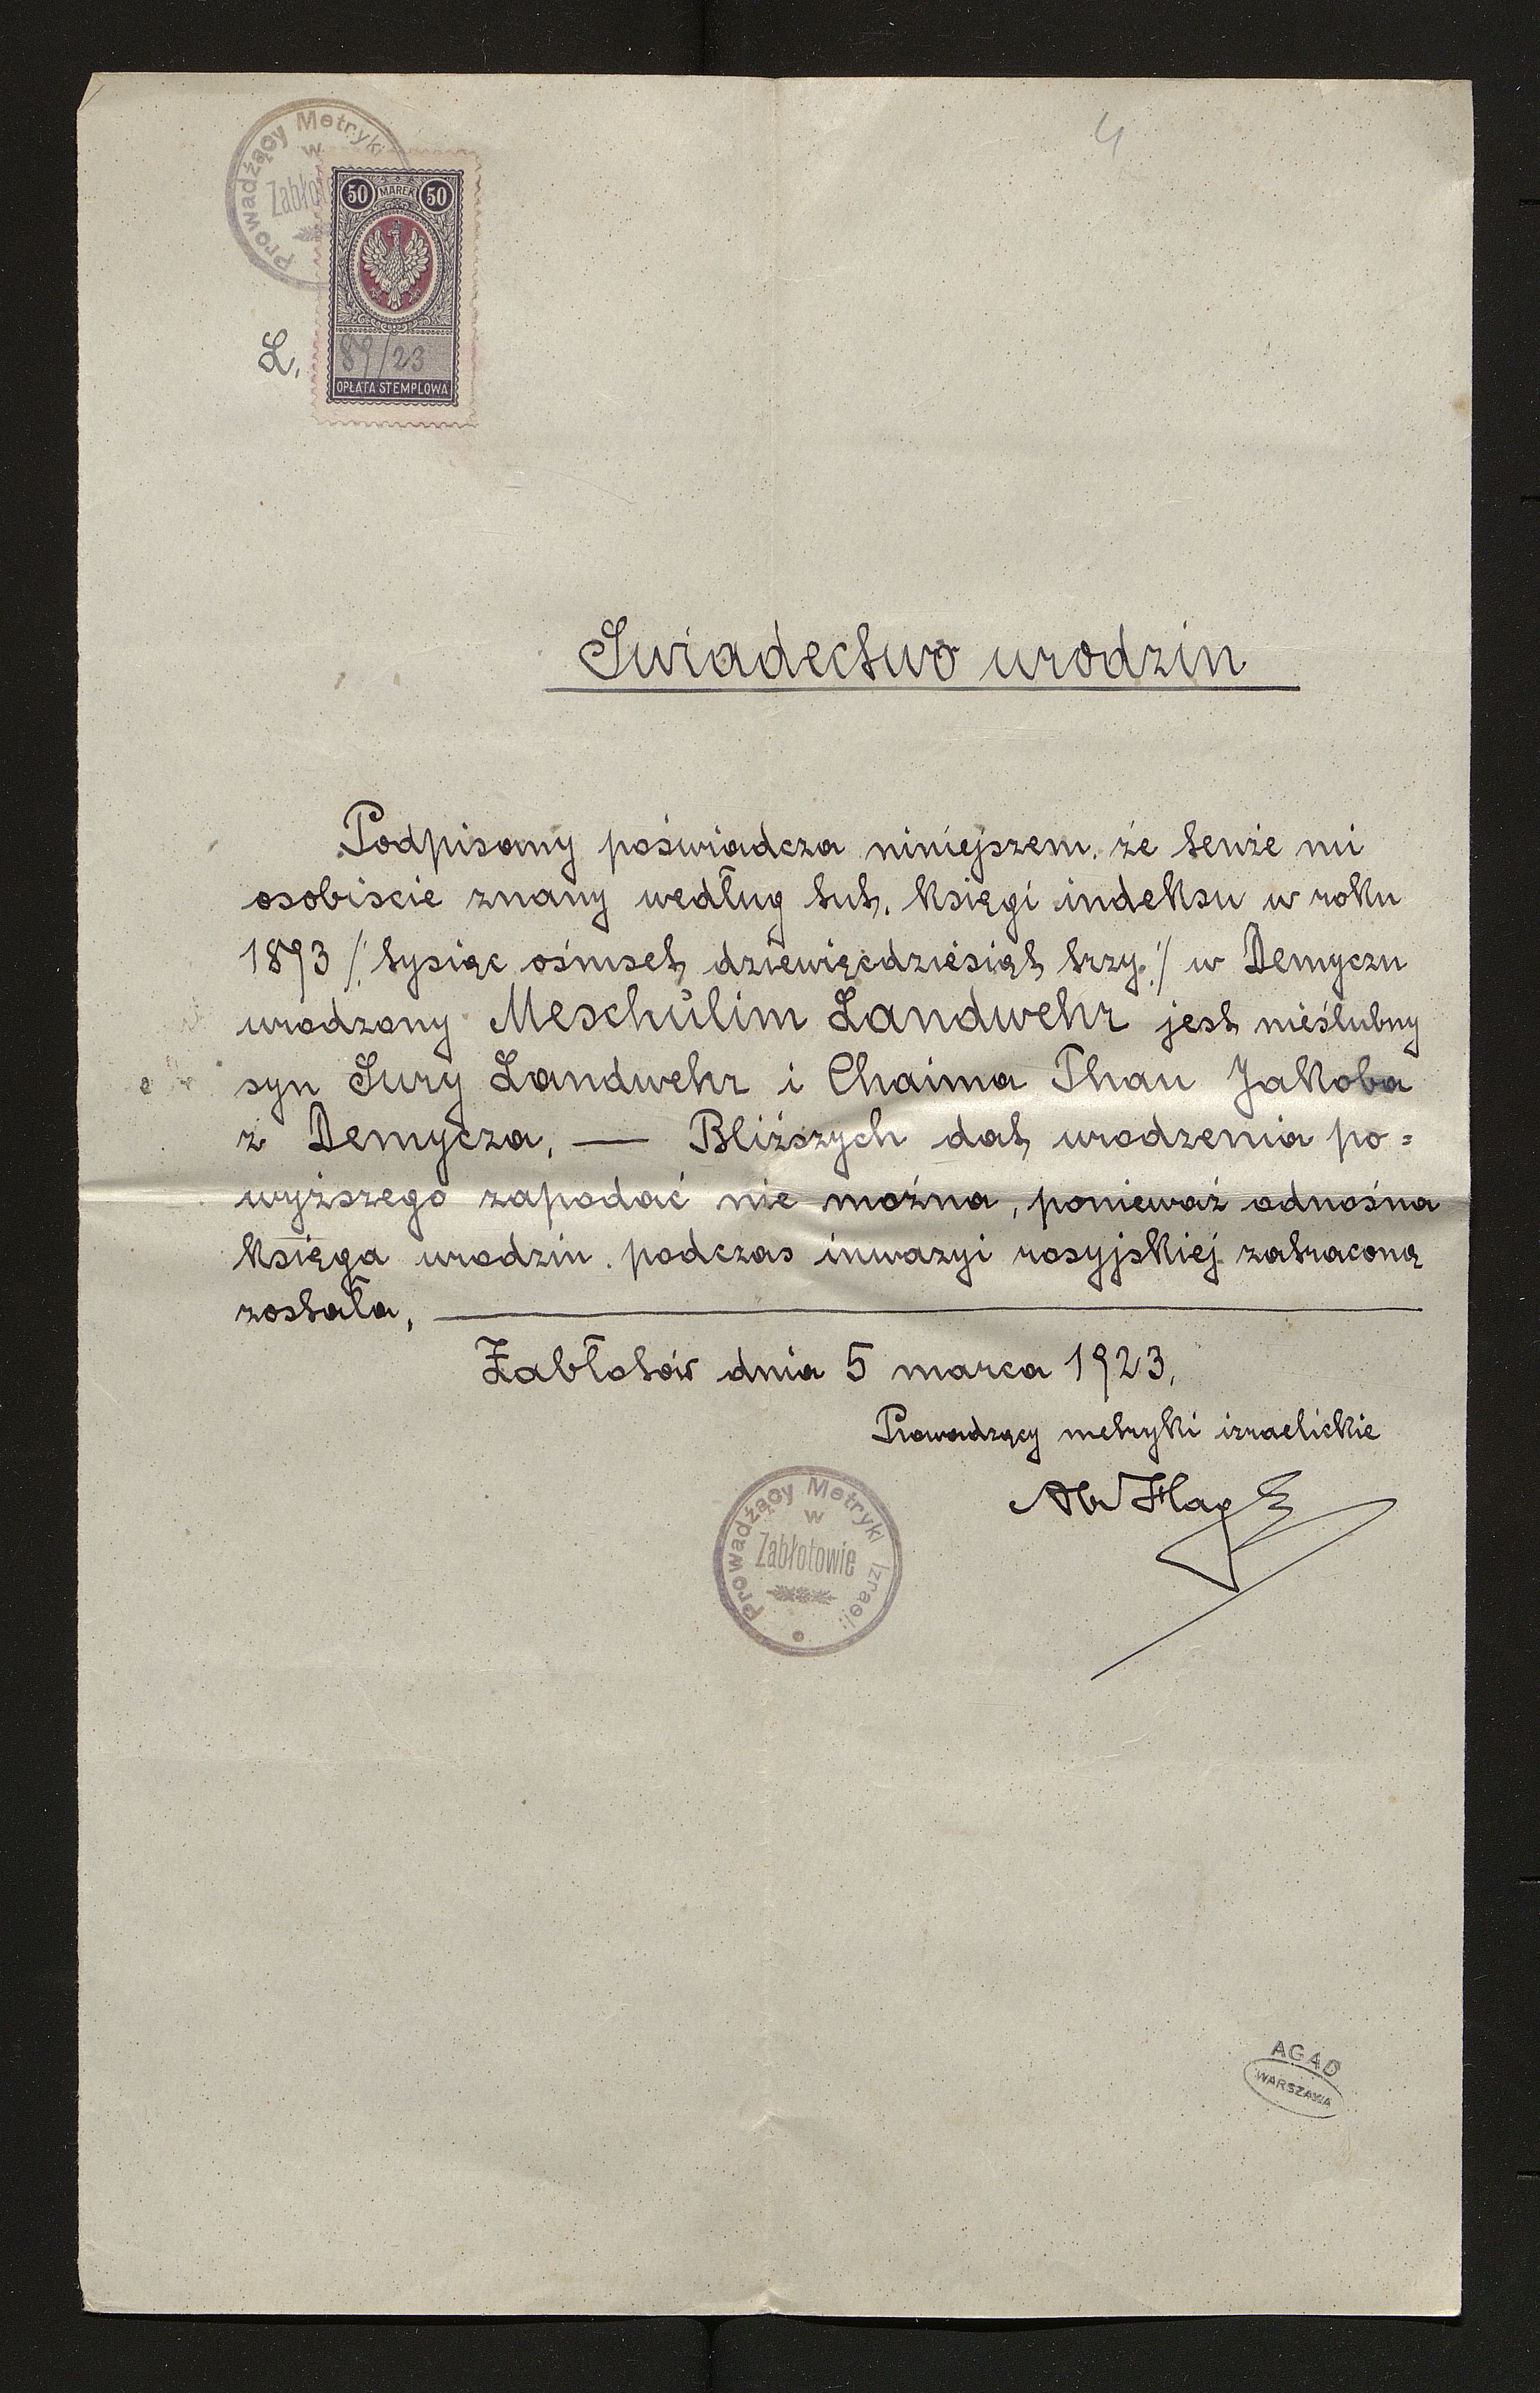 4
Prowadzący Metryki
w
Zabłoto
50 MAREK 50
L. 89/23
OPŁATA STEMPLOWA
Swiadectwo urodzin
Podpisany poświadcza niniejszem, że tenże mi
osobiscie znany według tut. księgi indeksu w roku
1893 /: tysiąc ośmset dziewięćdziesiąt trzy :/ w Demyczu
urodzony Meschulim Landwehr jest nieślubny
syn Sury Landwehr i Chaima Thau Jakoba
z Demycza. — Bliższych dat urodzenia po=
wyższego zapodać nie można, ponieważ odnośna
księga urodzin podczas inwazyi rosyjskiej zatraconą
została.
Zabłotów dnia 5 marca 1923.
Prowadzący metryki izraelickie
Prowadzący Metryki Izrael:
w
Zabłotowie
AGAD
WARSZAWA